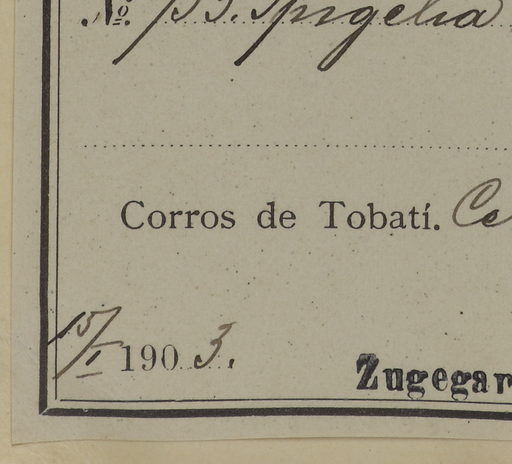 No. Spigelia
Corros de Tobatí. Ce
15/I 1903.
Zugegar